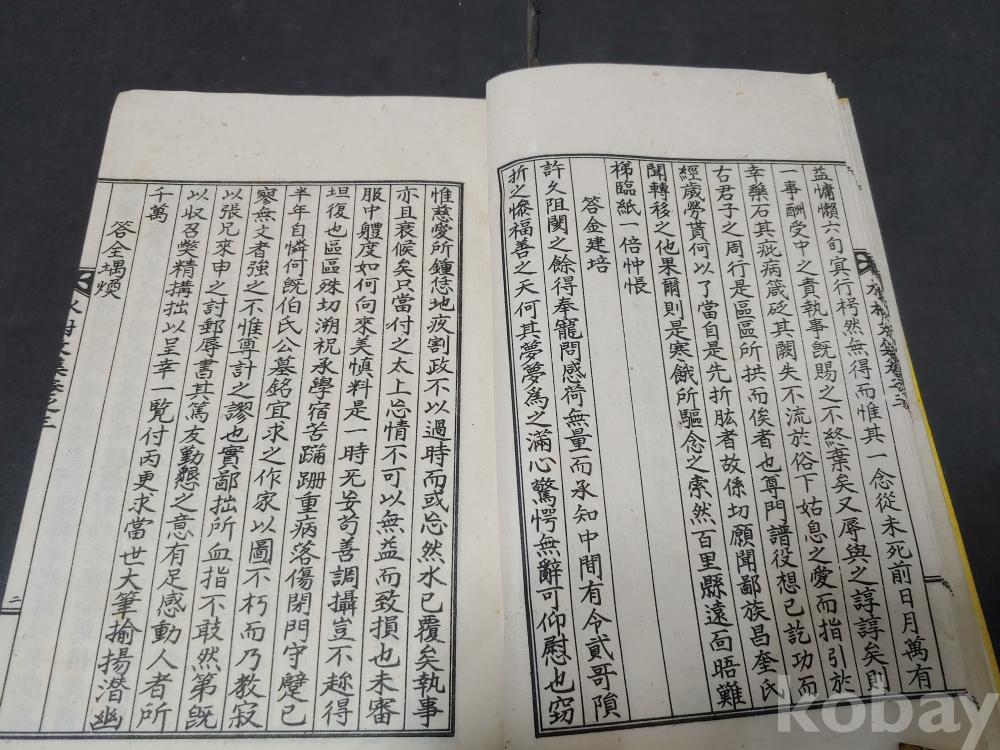 益慵懶六旬冥行枵然無得而惟其一念從未死前日月萬有
一事酬受中之責執事旣賜之不終棄矣又辱與之諄諄矣則
幸藥石其疵病箴砭其闕失不流於俗下姑息之愛而指引於
古君子之周行是區區所拱而俟者也尊門譜役想已訖功而
經歲勞貰何以了當自是先折肱者故係切願聞鄙族昌奎氏
聞轉移之他果爾則是寒餓所驅念之索然百里縣遠面晤難
梯臨紙一倍忡悵
答金建培
許久阻閡之餘得奉寵問感荷無量而承知中間有令貳哥隕
折之慘福善之天何其夢夢爲之滿心驚愕無辭可仰慰也窃
惟慈愛所鍾恁地疚割政不以過時而或忘然水已覆矣執事
亦且衰候矣只當付之太上忘情不可以無益而致損也未審
服中軆度如何向來美愼料是一時旡妄苟善調攝豈不趂得
坦復也區區殊切溯祝承學宿苦蹣跚重病落傷閉門守壁已
半年自憐何旣伯氏公墓銘宜求之作家以圖不朽而乃教寂
寥無文者強之不惟尊計之謬也實鄙拙所血指不敢然第旣
以張兄來申之討郵辱書其篤友勤懇之意有足感動人者所
以收召獘精搆拙以呈幸一覧付丙更求當世大筆揄揚潛幽
千萬
答全堣煐
文集卷之三
二
kobay